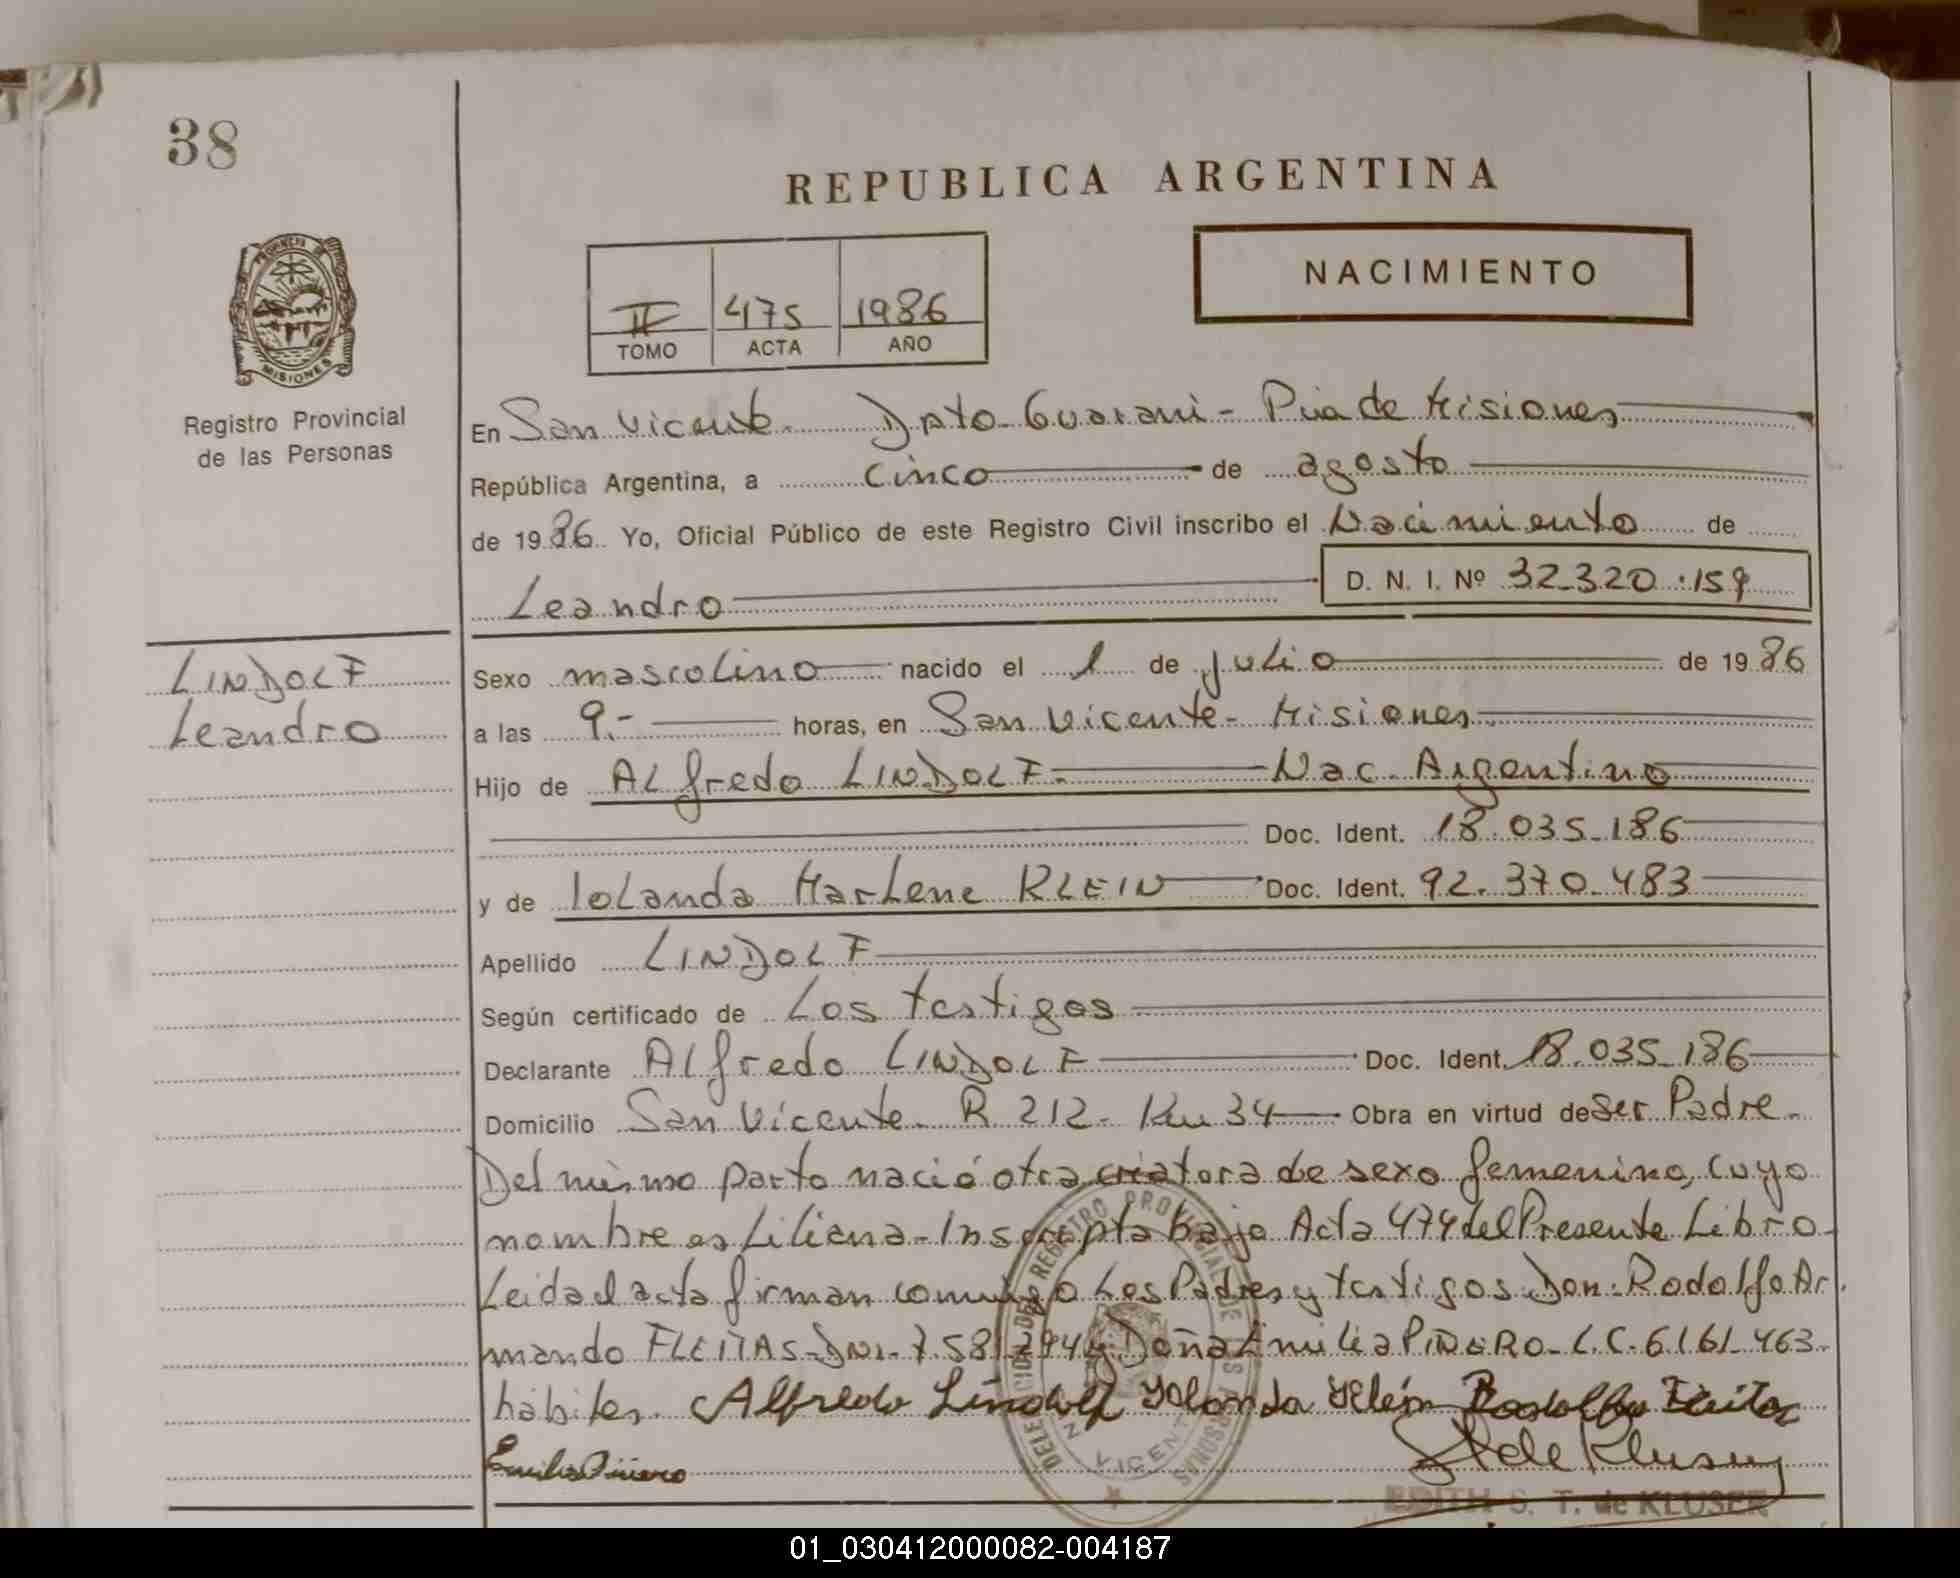 38
REPUBLICA ARGENTINA
NACIMIENTO
II 475 1986
TOMO ACTA AÑO
PROVINCIA DE
MISIONES
Registro Provincial
de las Personas
En San Vicente. Dpto Guarani - Pcia de Misiones
República Argentina, a cinco de agosto
de 1986 Yo, Oficial Público de este Registro Civil inscribo el Nacimiento de
Leandro D. N. I. Nº 32.320.159
LINDOLF
Leandro
Sexo mascolino nacido el 1 de Julio de 1986
a las 9.- horas, en San Vicente - Misiones
Hijo de Alfredo LINDOLF. Nac. Argentino
Doc. Ident. 18.035.186
y de Iolanda Marlene KLEIN Doc. Ident. 92.370.483
Apellido LINDOLF
Según certificado de Los testigos
Declarante Alfredo LINDOLF Doc. Ident. 18.035.186
Domicilio San Vicente. R 212. Km 34 Obra en virtud de Ser Padre.
Del mismo parto nació otra criatura de sexo femenino, cuyo
nombre es Liliana - Inscripta bajo Acta 474 del Presente Libro -
Leida el acta firman conmigo Los Padres y testigos Don: Rodolfo Ar
mando FLEITAS - DNI - 7.581.294 y Doña Emilia PIÑERO - L.C. 6.161.463.
hábiles. Alfredo Lindolf Yolanda Klein Rodolfo Fleitas
Emilia Piñero
DELEGACION DEL REGISTRO PROVINCIAL DE LAS PERSONAS
VICENT
EDITH S. T. de KLUSER
01_030412000082-004187